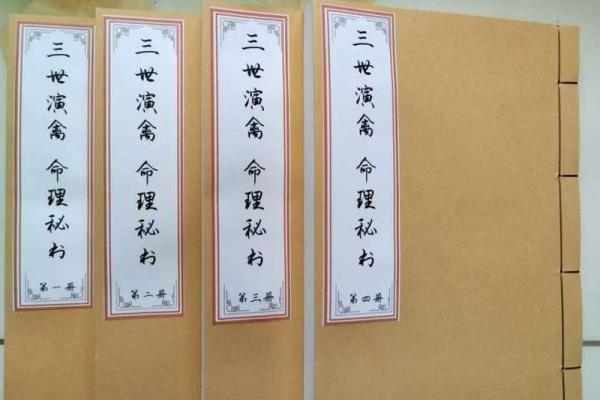 三世演禽 命理秘书
第一册
三世演禽 命理秘书
第二册
三世演禽 命理秘书
第三册
三世演禽 命理秘书
第四册